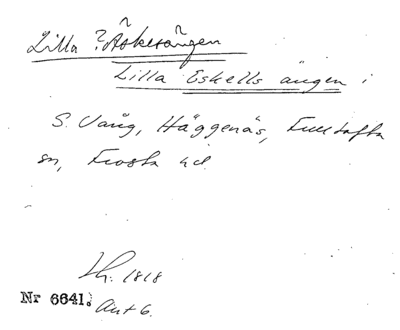 Lilla ?Äskerängen
Lilla Eskells ängen i
S. Vång, Häggenäs, Fulltofta
sn, Frosta hd.
Lh. 1818
Nr 6641. Akt 6.